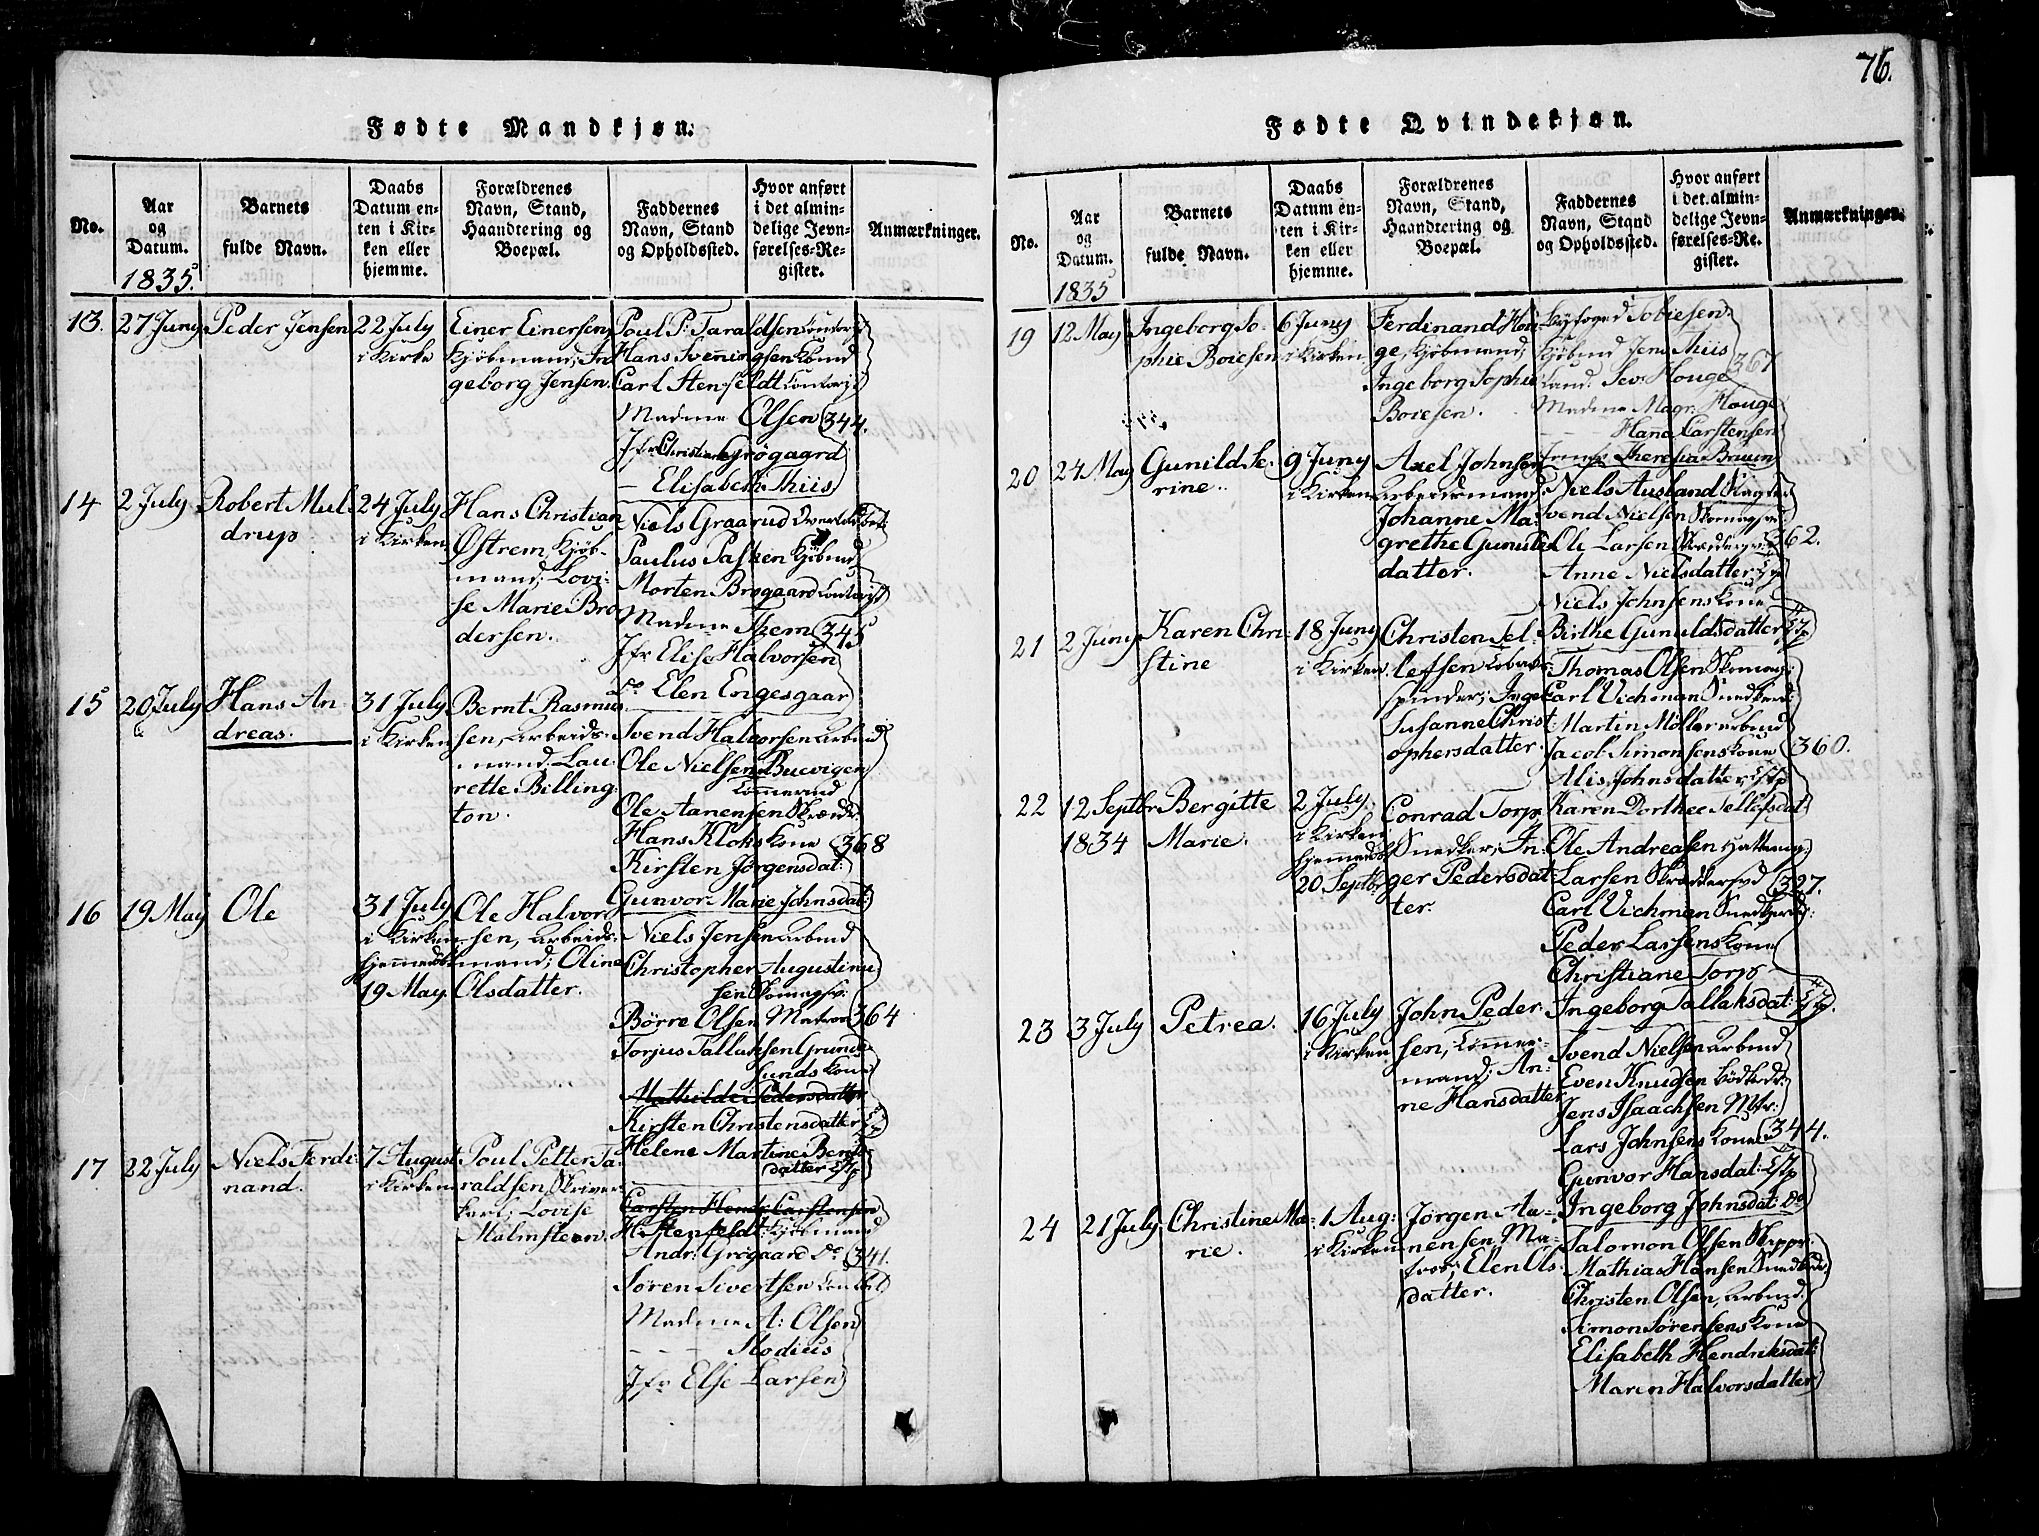 76.
Fødte Mandkjøn.
No.
Aar og Datum. 1835
Barnets fulde Navn.
Daabs Datum enten i Kirken eller hjemme.
Forældrenes Navn, Stand, Haandtering og Boepæl.
Faddernes Navn, Stand og Opholdssted.
Hvor anført i det almindelige Jevnførelses-Register.
Anmærkninger.
13. 27 Juny Peder Jensen
22 July
i Kirke
Einer Einersen
Kjøbmand; In
geborg Jensen.
Poul P: Taraldsen
Hans Svenningsen
Carl Stenfeldt
Madme Olsen 344.
Jfr Christiane Grögaard
— Elisabeth Thiis
14 2 July Robert Mul
drup
24 July
i Kirken
Hans Christian
Østrem, Kjöb-
mand; Lovi-
se Marie Bro
dersen.
Niels Graarud
Paulus Kjöbmd
Morten Brogaard
Madme Them 345
Jfr Elise Halvorsen
Do Elen Engesgaar
15 20 July Hans An
dreas.
31 July
i Kirken
Bernt Rasmus
sen, Arbeids-
mand; Lau
rette Billing
ton.
Svend Halvorsen arbmd
Ole Nielsen Buevigen
Tömmermd
Ole Aanensen
Hans Kloks Kone 368
Kirsten Jørgensdat:
Gunvor Marie Johnsdat:
16 19 May Ole
31 July
i Kirken
hjemmedöbt
19 May.
Ole Halvor
sen, Arbeids-
mand; Oline
Olsdatter.
Niels Jensen arbmd
Christopher Augustinu
sen Skomagsv:
Börre Olsen Matros 364
Torjus Tallaksen Grund
sunds Kone
Mathilde Pedersdatter
Kirsten Christensdatter
Helene Martine Bent
datter
17 22 July Niels Ferdi
nand.
7 August
i Kirken
Poul Petter Ta-
raldsen, Skriver
karl; Lovise
Malmsteen.
Carsten Henr: Carstensen
H. Stenfeldt Kjöbmand
Andr: Grögaard Do 341.
Sören Sivertsen
Madme A: Olsen
— — — Modius
Jfr Else Larsen
Fødte Qvindekjøn.
No.
Aar og Datum. 1835
Barnets fulde Navn.
Daabs Datum enten i Kirken eller hjemme.
Forældrenes Navn, Stand, Haandtering og Boepæl.
Faddernes Navn, Stand og Opholdssted.
Hvor anført i det almindelige Jevnførelses-Re. gister.
Anmærkninger.
19 12 May Ingeborg So-
phie Boiesen
6 Juny
i Kirken
Ferdinand Hou
ge, Kjöbmand;
Ingeborg Sophie
Boiesen.
Byfoged Tobiesen.
Kjöbmd Jens Thiis 367
Cand: Sev: Houge
Madme Magr: Houge
Hanna Carstensen
Theresia Bruun
20 24 May Gunild Se-
rine.
9 Juny
i Kirken
Axel Johnsen
Arbeidsmand;
Johanne Ma-
grethe Gunulds
datter.
Niels Ausland Slagter
Svend Nielsen Skomagsv
Ole Larsen 362.
Anne Nielsdatter
Niels Johnsens Kone
Birthe Gunuldsdatter
21 2 Juny Karen Chri-
stine
18 Juny
i Kirken
Christen Tel-
lefsen Tobaks-
spinder; Inge
Susanne Christ-
ophersdatter.
Thomas Olsen Skomag:
Carl Vichman
Martin Möller arbmd
Jacob Simonsens Kone 360.
Alis Johnsdatter
Karen Dorthee Tellefsdat:
22 12 Septbr Bergitte
1834 Marie.
2 July
i Kirken
hjemmedöbt
20 Septbr
Conrad Torp
Snedker; In-
ger Pedersdat
ter.
Ole Andreasen Hattemag:
Larsen Skræddersvd 327.
Carl Vichman
Peder Larsens Kone
Christiane Torp
Ingeborg Tallaksdat:
23 3 July Petrea.
16 July
i Kirken
John Peder-
sen, Tömmer-
mand; An-
ne Hansdatter
Svend Nielsen Arbmd
Even Knudsen
Jens Isaachsen Mtr:
Lars Johnsens Kone 344.
Gunvor Hansdat:
Ingeborg Johnsdat: Do
24 21 July Christine Ma-
rie.
1 Aug:
i Kirken
Jörgen Aa-
nensen, Ma-
tros; Elen Ols-
datter.
Salomon Olsen Skipper
Mathias Hansen
Christen Olsen, Arbmd
Simon Sörensens Kone
Elisabeth Hendriksdat:
Maren Halvorsdatter